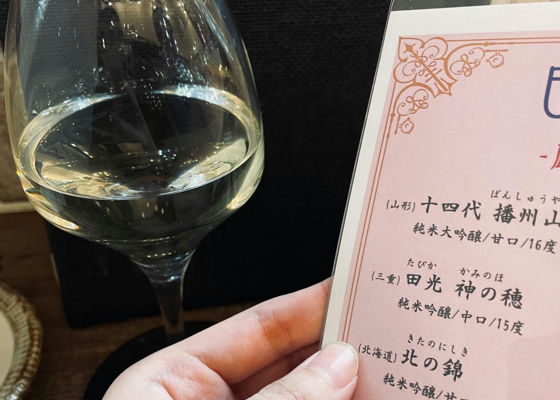 ばんしゅうや
(山形) 十四代 播州山
純米大吟醸/甘口/16度
たびか かみのほ
(三重) 田光 神の穂
純米吟醸/中口/15度
きたのにしき
(北海道) 北の錦
純米吟醸/甘